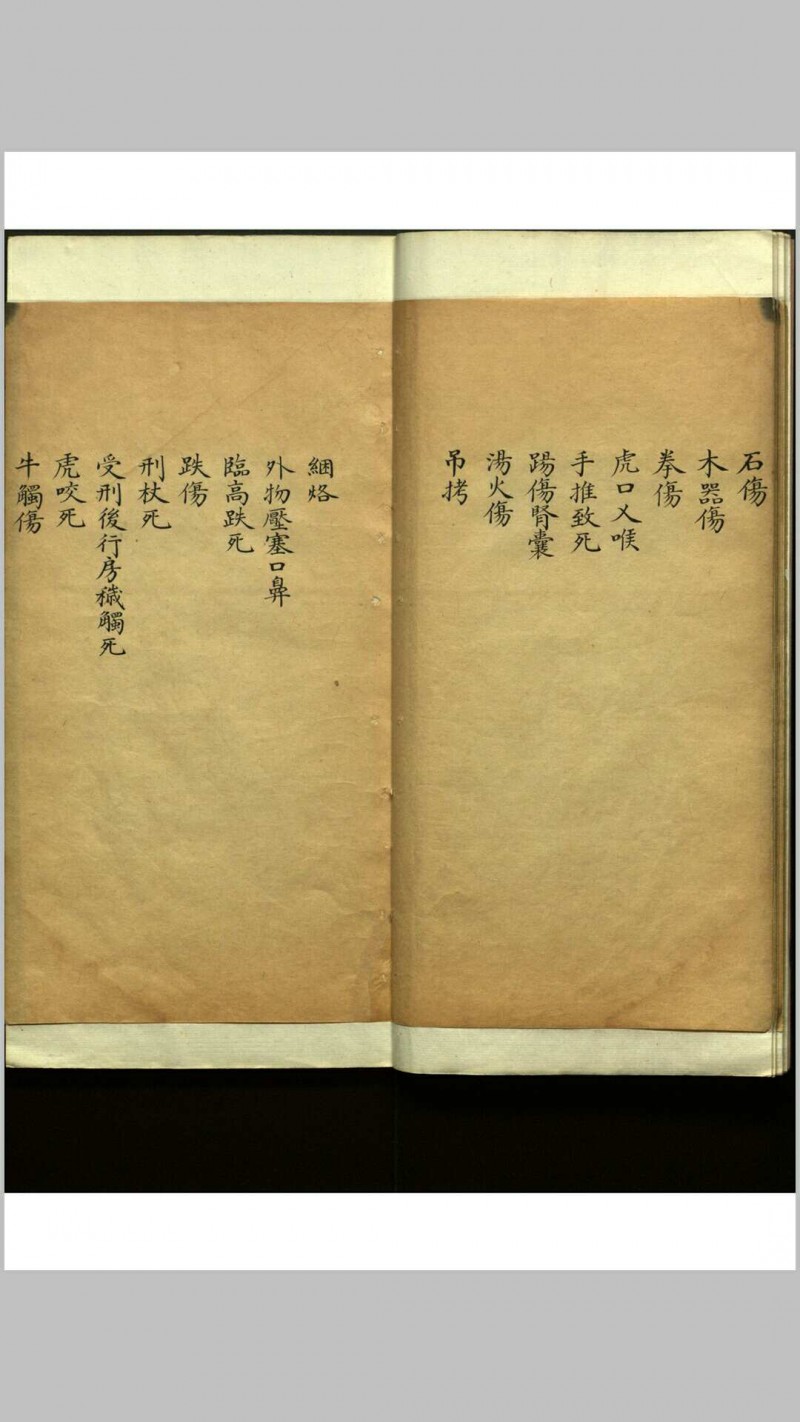 石傷
木器傷
拳傷
虎口㐅喉
手推致死
踢傷腎囊
湯火傷
吊拷
綑烙
外物壓塞口鼻
臨高跌死
跌傷
刑杖死
受刑後行房穢觸死
虎咬死
牛觸傷